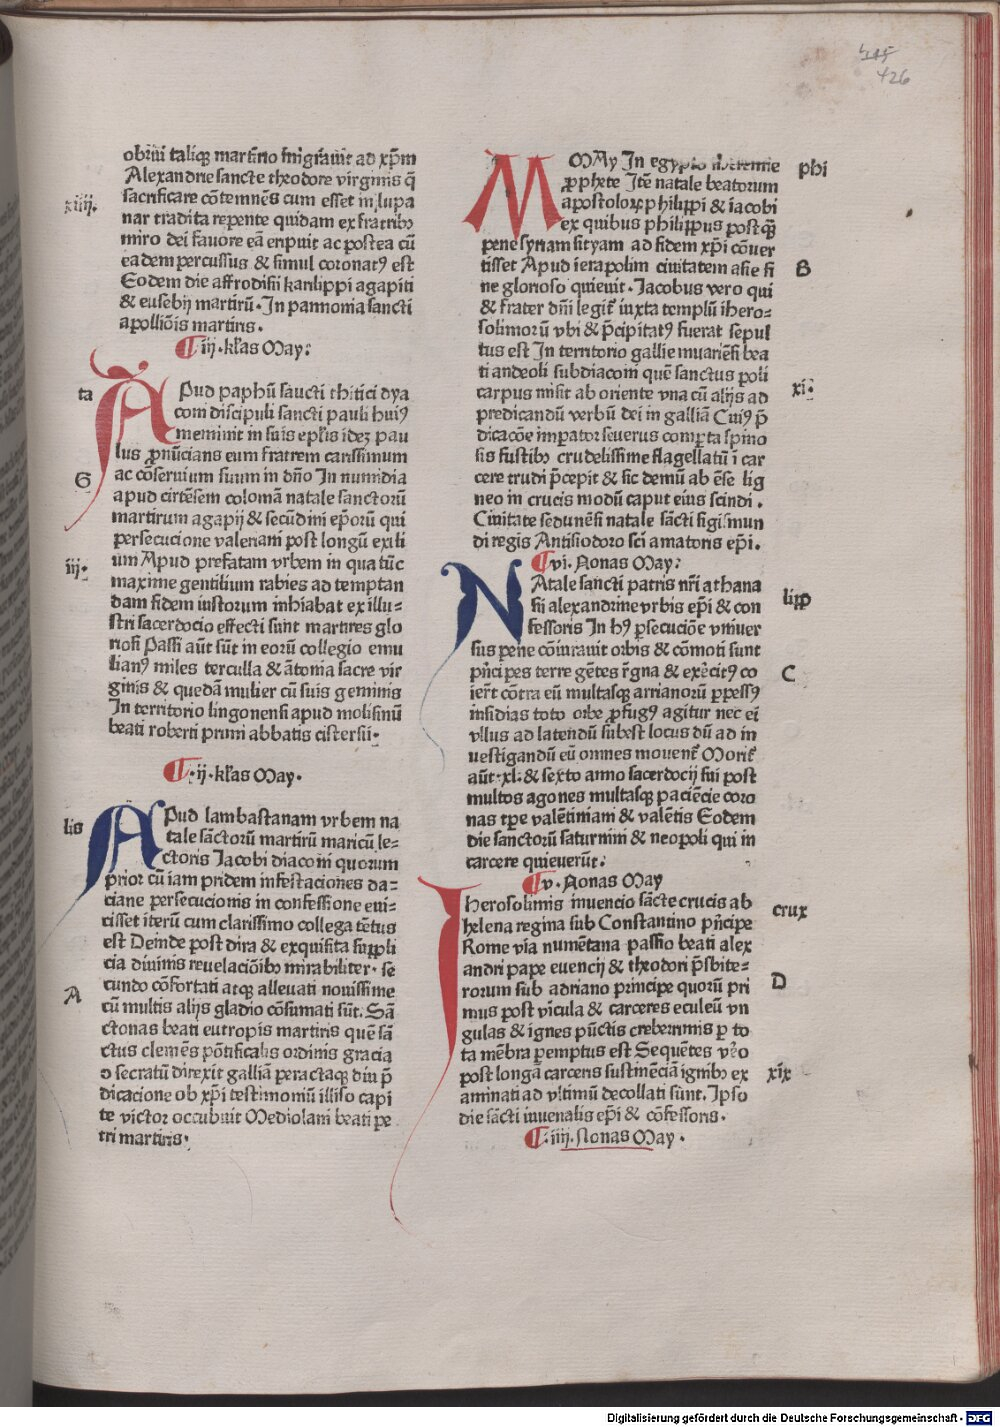 415
426
obrüi taliqꝫ martirio migravit ad xp̄m
Alexandrie sancte theodore virginis q̄
xiiij.
sacrificare cōtemnēs cum esset in lupa
nar tradita repente quidam ex fratribꝰ
miro dei fauore eā eripuit ac postea cū
eadem percussus & simul coronatꝰ est
Eodem die affrodisii karilippi agapiti
& eusebij martirū. In pannonia sancti
apolliōis martiris.
iij. kl̄as May:
ta
APud paphū sancti thitici dya
coni discipuli sancti pauli huiꝰ
meminit in suis ep̄lis idez pau
lus ꝓnūcians eum fratrem carissimum
G
ac cōseruium suum in dn̄o In numidia
apud cirtēsem colomā natale sanctorū
martirum agapij & secūdini ep̄orū qui
persecucione valeriani post longū exili
iij.
um Apud prefatam vrbem in qua tūc
maxime gentilium rabies ad temptan
dam fidem iustorum inhiabat ex illu=
stri sacerdocio effecti sunt martires glo
riosi Passi aūt sūt in eorū collegio emu
lianꝰ miles terculla & ātonia sacre vir
ginis & quedā mulier cū suis geminis
In territorio lingonensi apud molisinū
beati roberti primi abbatis cistersii.
.ij. kl̄as May.
lis
APud lambastanam vrbem na
tale sāctorū martirū maricū le=
ctoris Jacobi diaconi quorum
prior cū iam pridem infestaciones da=
ciane persecucionis in confessione eui=
cisset iterū cum clarissimo collega tētus
est Deinde post dira & exquisita suppli
cia diuinis reuelaciōibꝰ mirabiliter. se
A
cundo cōfortati atqꝫ alleuati nouissime
cū multis alijs gladio cōsumati sūt. Sā
ctonas beati eutropis martiris quē sā
ctus clemēs pōtificalis ordinis gracia
o secratū direxit galliā peractaqꝫ diu p̄
dicacione ob xp̄i testimoniū illiso capi
te victor occubuit Mediolani beati pe
tri martiris.
MAy In egypto iheremie
phi
ꝓphete Itē natale beatorum
apostoloꝝ philippi & iacobi
ex quibus philippus postqꝫ
pene syriam sityam ad fidem xp̄i cōuer
B
tisset Apud ierapolim ciuitatem asie fi
ne glorioso quieuit. Jacobus vero qui
& frater dn̄i legit̄ iuxta templū ihero=
solimorū vbi & p̄cipitatꝰ fuerat sepul
tus est In territorio gallie muariēsi bea
ti andeoli subdiaconi quē sanctus poli
xi.
carpus misit ab oriente vna cū alijs ad
predicandū verbū dei in galliā Cuiꝰ p̄
dicacōe imꝑator seuerus comꝑta spino
sis fustibꝰ crudelissime flagellatū ī car
cere trudi p̄cepit & sic demū ab ēse lig
neo in crucis modū caput eius scindi.
Ciuitate sedunēsi natale sācti sigismun
di regis Antisiodoro sci amatoris ep̄i.
vi. Nonas May:
NAtale sancti patris nr̄i athana
lixꝓ
sii alexandrine vrbis ep̄i & con
fessoris In hꝰ ꝑsecuciōe vniuer
sus pene cōiurauit orbis & cōmoti sunt
C
p̄ncipes terre gētes r̄gna & exēcitꝰ co
ier̄t cōtra eū multasqꝫ arrianorū ꝑpessꝰ
insidias toto orbe ꝓfugꝰ agitur nec ei
vllus ad latendū subest locus dū ad in
uestigandū eū omnes mouent̄ Morit̄
aūt .xl. & sexto anno sacerdocij sui post
multos agones multasqꝫ paciēcie coro
nas tꝑe valētiniam & valētis Eodem
die sanctorū saturnini & neopoli qui in
carcere quieuerūt.
v. Nonas May
Jherosolimis inuencio sācte crucis ab
crux
helena regina sub Constantino p̄ncipe
Rome via numētana passio beati alex
andri pape euencij & theodori p̄sbite=
D
rorum sub adriano principe quorū pri
mus post vīcula & carceres eculeū vn
gulas & ignes pūctis creberrimis ꝑ to
ta mēbra ꝑemptus est Sequētes v̄o
xix
post longā carceris sustinēciā ignibꝰ ex
aminati ad vltimū decollati sunt. Ipso
die sācti iuuenalis ep̄i & cōfessoris.
.iiij. Nonas May.
Digitalisierung gefördert durch die Deutsche Forschungsgemeinschaft - DFG